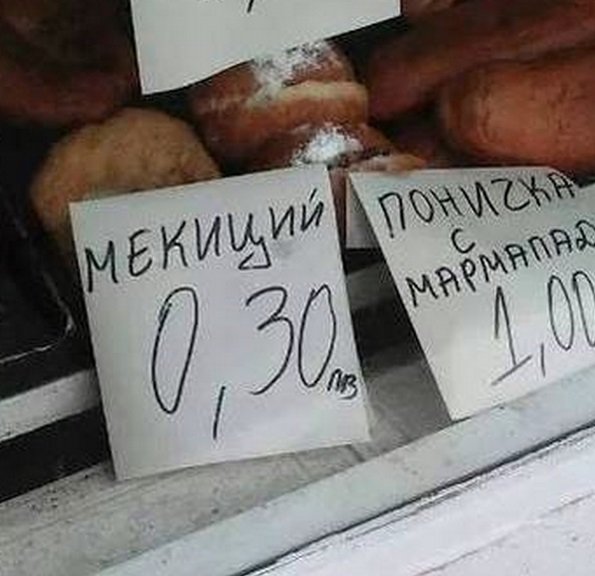 МЕКИЦИЙ
0,30 лв
ПОНИЧКА
С
МАРМАЛАД
1,00